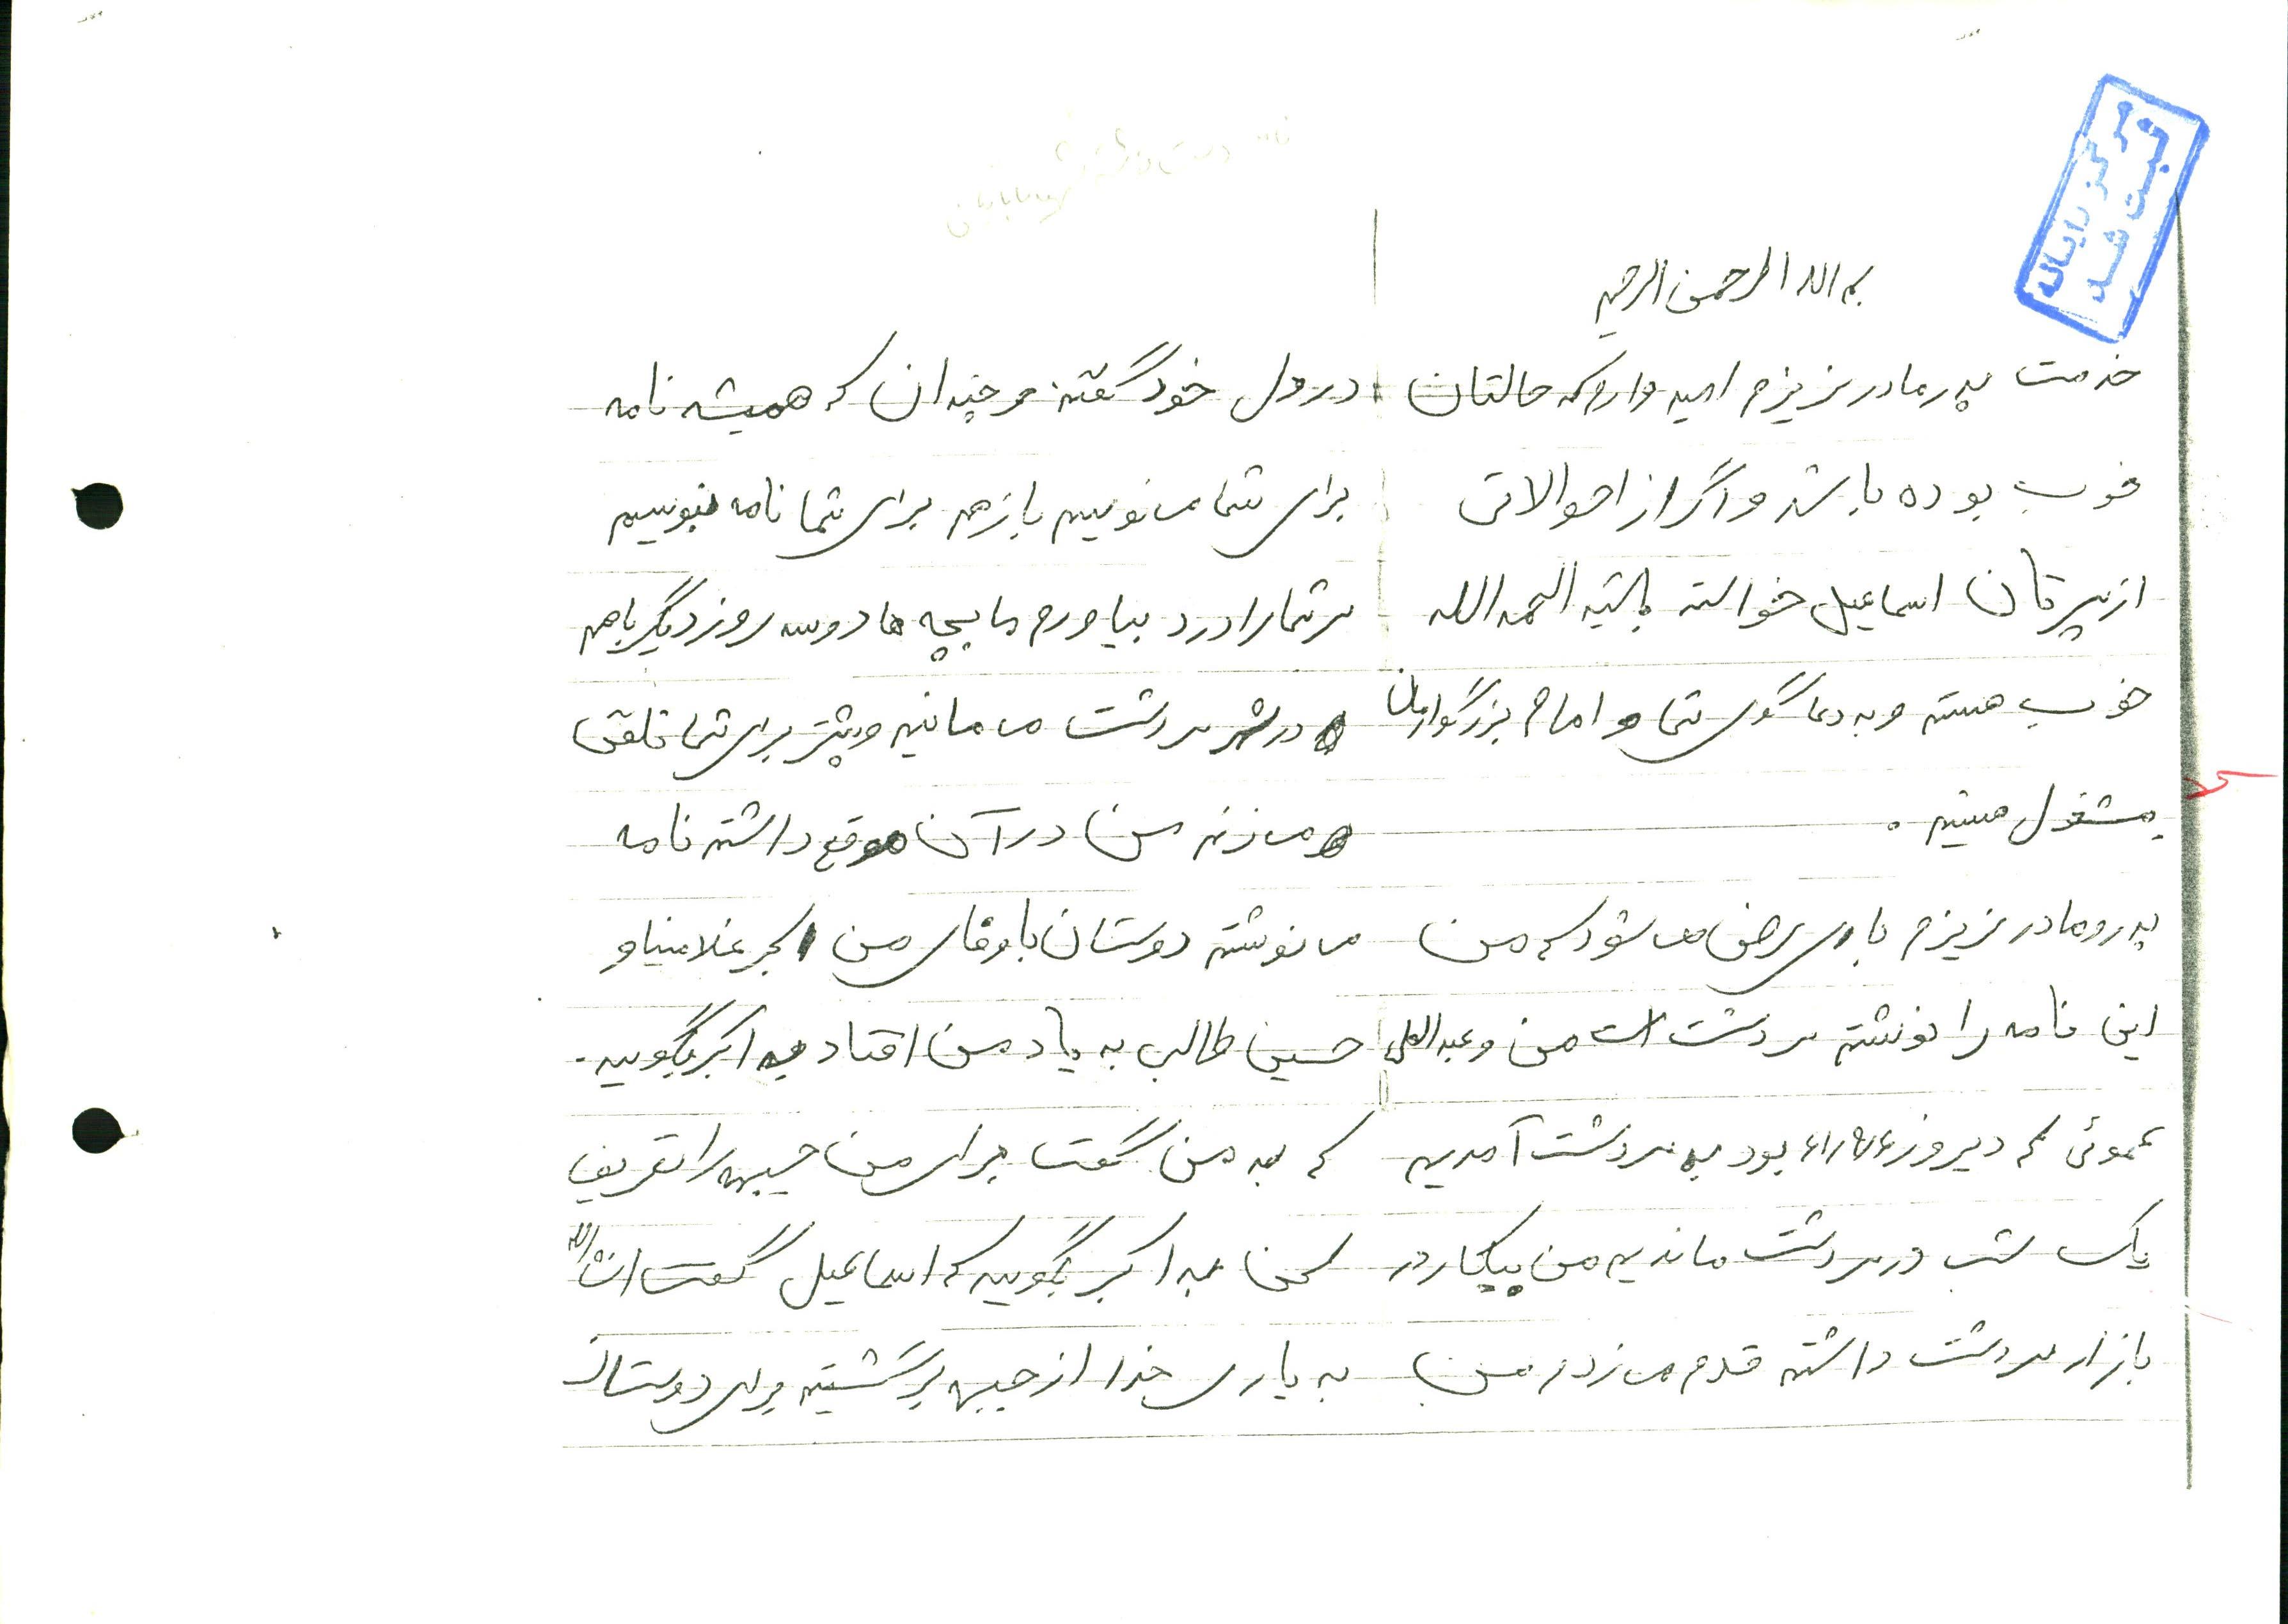 مرکز رایانه
ثبت شد
بسم الله الرحمن الرحیم
خدمت پدر مادر عزیزم امید وارم که حالتان
خوب بوده باشد و اگر از احوالاتی
از پسرتان اسماعیل خواسته باشید الحمد الله
خوب هستم و به دعا گوی شما و امام بزرگوارمان
مشغول هستیم .
پدر و مادر عزیزم باری عرض می شود که من
این نامه را نوشتم سردشت است من و عبدالعلی
عموئی که دیروز بود به سردشت آمدیم
یک شب در سردشت ماندیم من بیکار در
بازار سردشت داشتم قدم می زدم من
در دل خود گفتم هر چندان که همیشه نامه
برای شما می نویسم بازهم برای شما نامه بنویسم
سر شما را درد بیاورم ما بچه ها دو سه روز دیگر باهم
در شهر سردشت می مانیم و بیشتر برای شما تلفن
می زنم من در آن موقع داشتم نامه
می نوشتم دوستان باوفای من اکبر غلامنیا و
حسین طالب به یاد من افتاد به اکبر بگویید .
که به من گفت برای من جبهه را تعریف
کن به اکبر بگویید که اسماعیل گفت انشاالله
به یاری خدا از جبهه برگشتیم برای دوستان